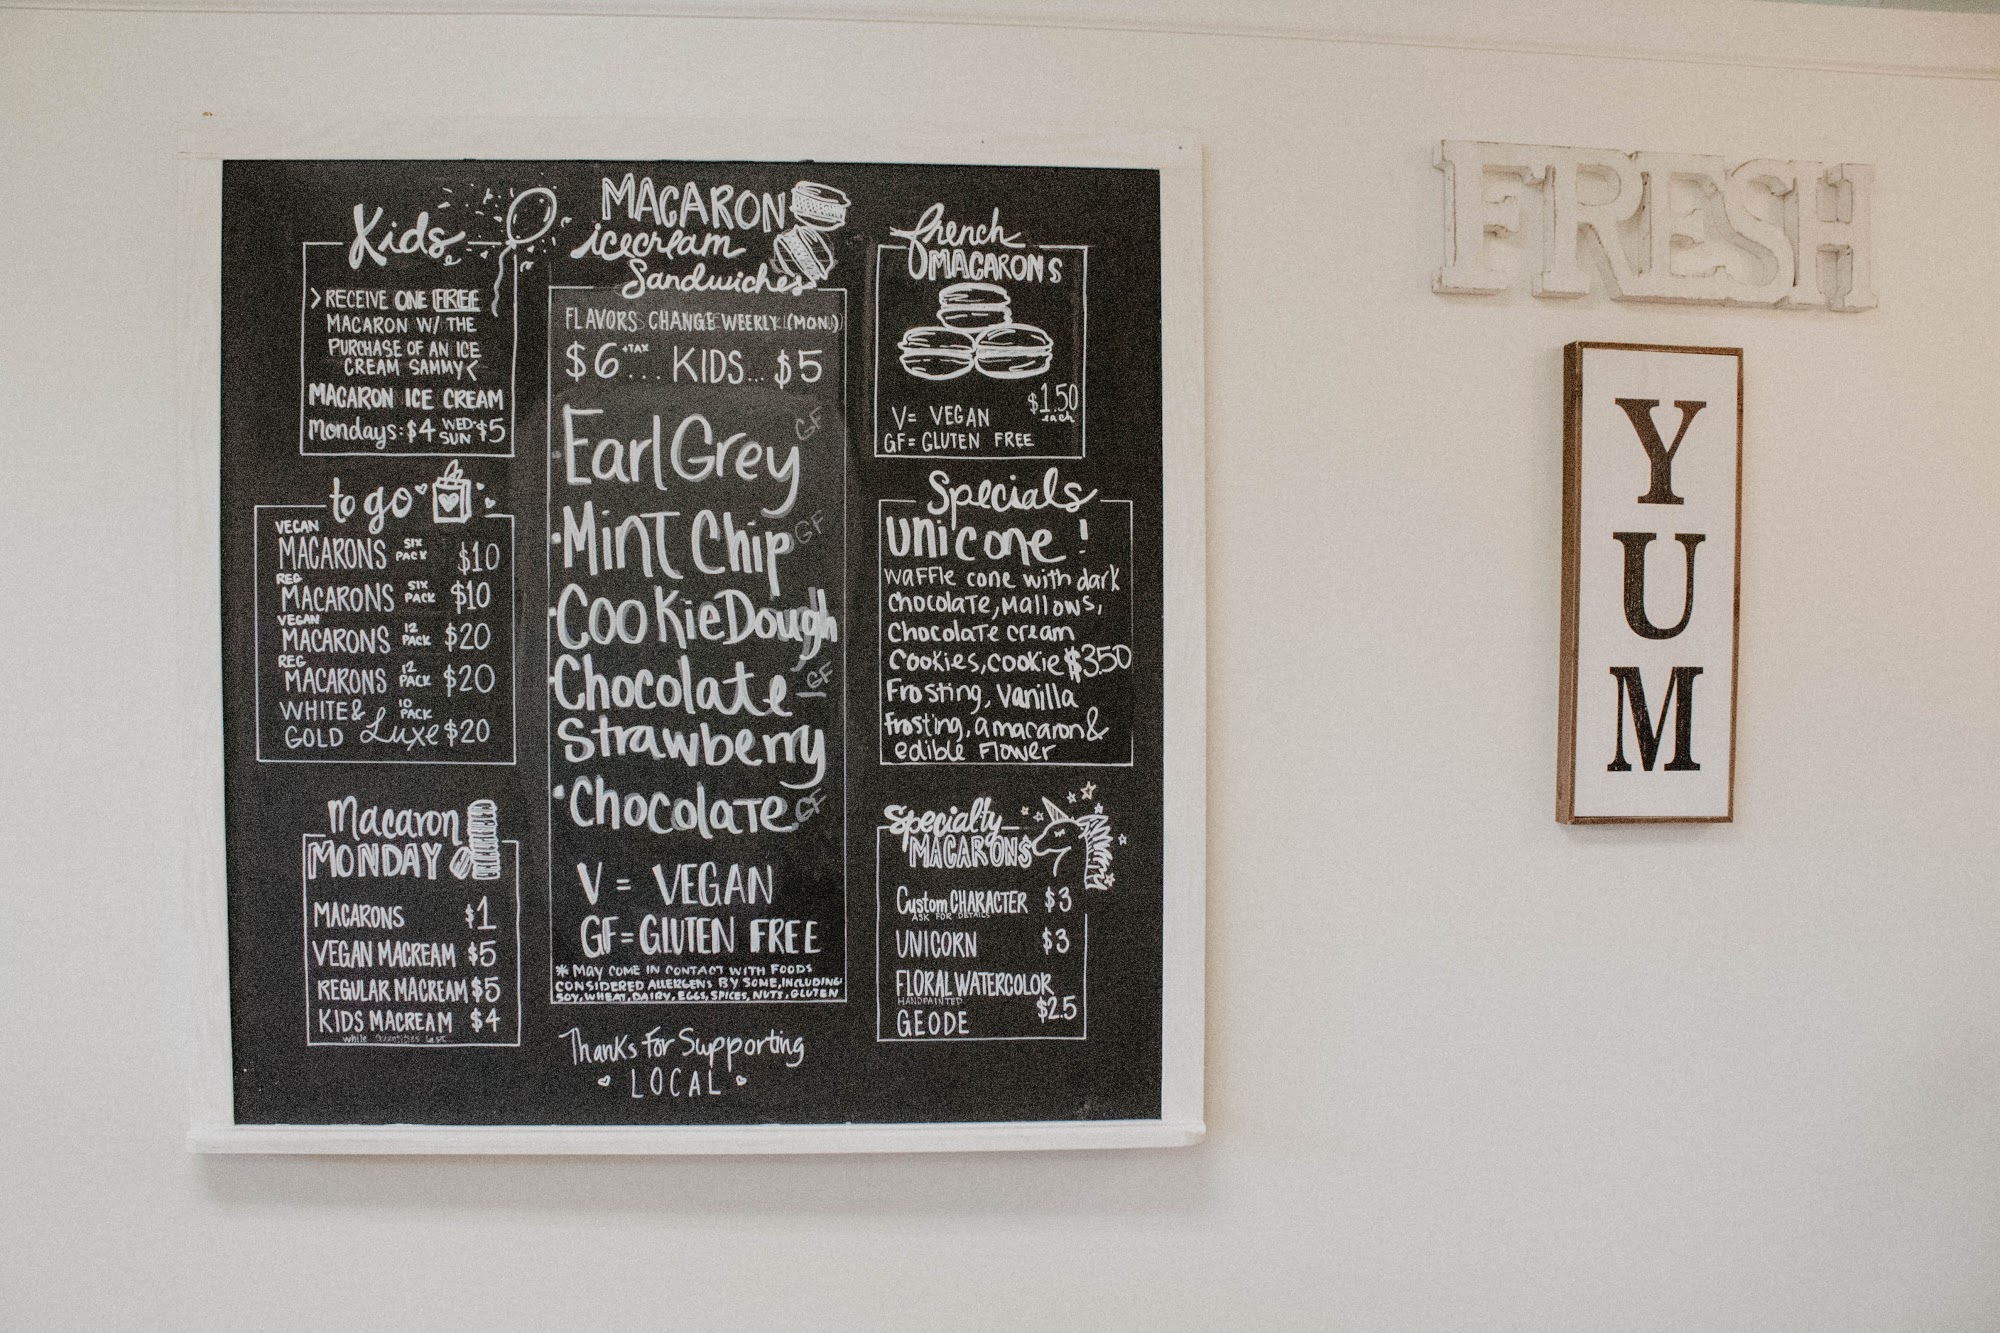 Kids
> RECEIVE ONE FREE
MACARON W/ THE
PURCHASE OF AN ICE
CREAM SAMMY <
MACARON ICE CREAM
Mondays: $4 WED-SUN $5
to go
VEGAN MACARONS SIX PACK $10
REG MACARONS SIX PACK $10
VEGAN MACARONS 12 PACK $20
REG MACARONS 12 PACK $20
WHITE & GOLD Luxe 10 PACK $20
Macaron
MONDAY
MACARONS $1
VEGAN MACREAM $5
REGULAR MACREAM $5
KIDS MACREAM $4
while quantities last
MACARON
icecream
Sandwiches
FLAVORS CHANGE WEEKLY (MON.)
$6 +TAX... KIDS... $5
Earl Grey GF
·Mint Chip GF
·Cookie Dough
·Chocolate- GF
Strawberry
·Chocolate GF
V = VEGAN
GF = GLUTEN FREE
* MAY COME IN CONTACT WITH FOODS
CONSIDERED ALLERGENS BY SOME, INCLUDING
SOY, WHEAT, DAIRY, EGGS, SPICES, NUTS, GLUTEN
Thanks For Supporting
LOCAL
french
MACARONS
$1.50
each
V= VEGAN
GF= GLUTEN FREE
Specials
unicone!
waffle cone with dark
chocolate, mallows,
chocolate cream
cookies, cookie $3.50
Frosting, Vanilla
frosting, a macaron &
edible flower
Specialty
MACARONS
Custom CHARACTER $3
ASK FOR DETAILS
UNICORN $3
FLORAL WATERCOLOR
HANDPAINTED
GEODE $2.5
FRESH
Y
U
M